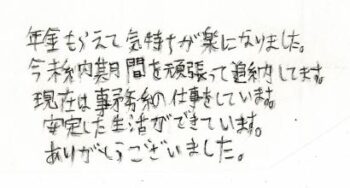 年金もらえて気持ちが楽になりました。
今未納期間を頑張って追納してます。
現在は事務系の仕事をしています。
安定した生活ができています。
ありがとうございました。